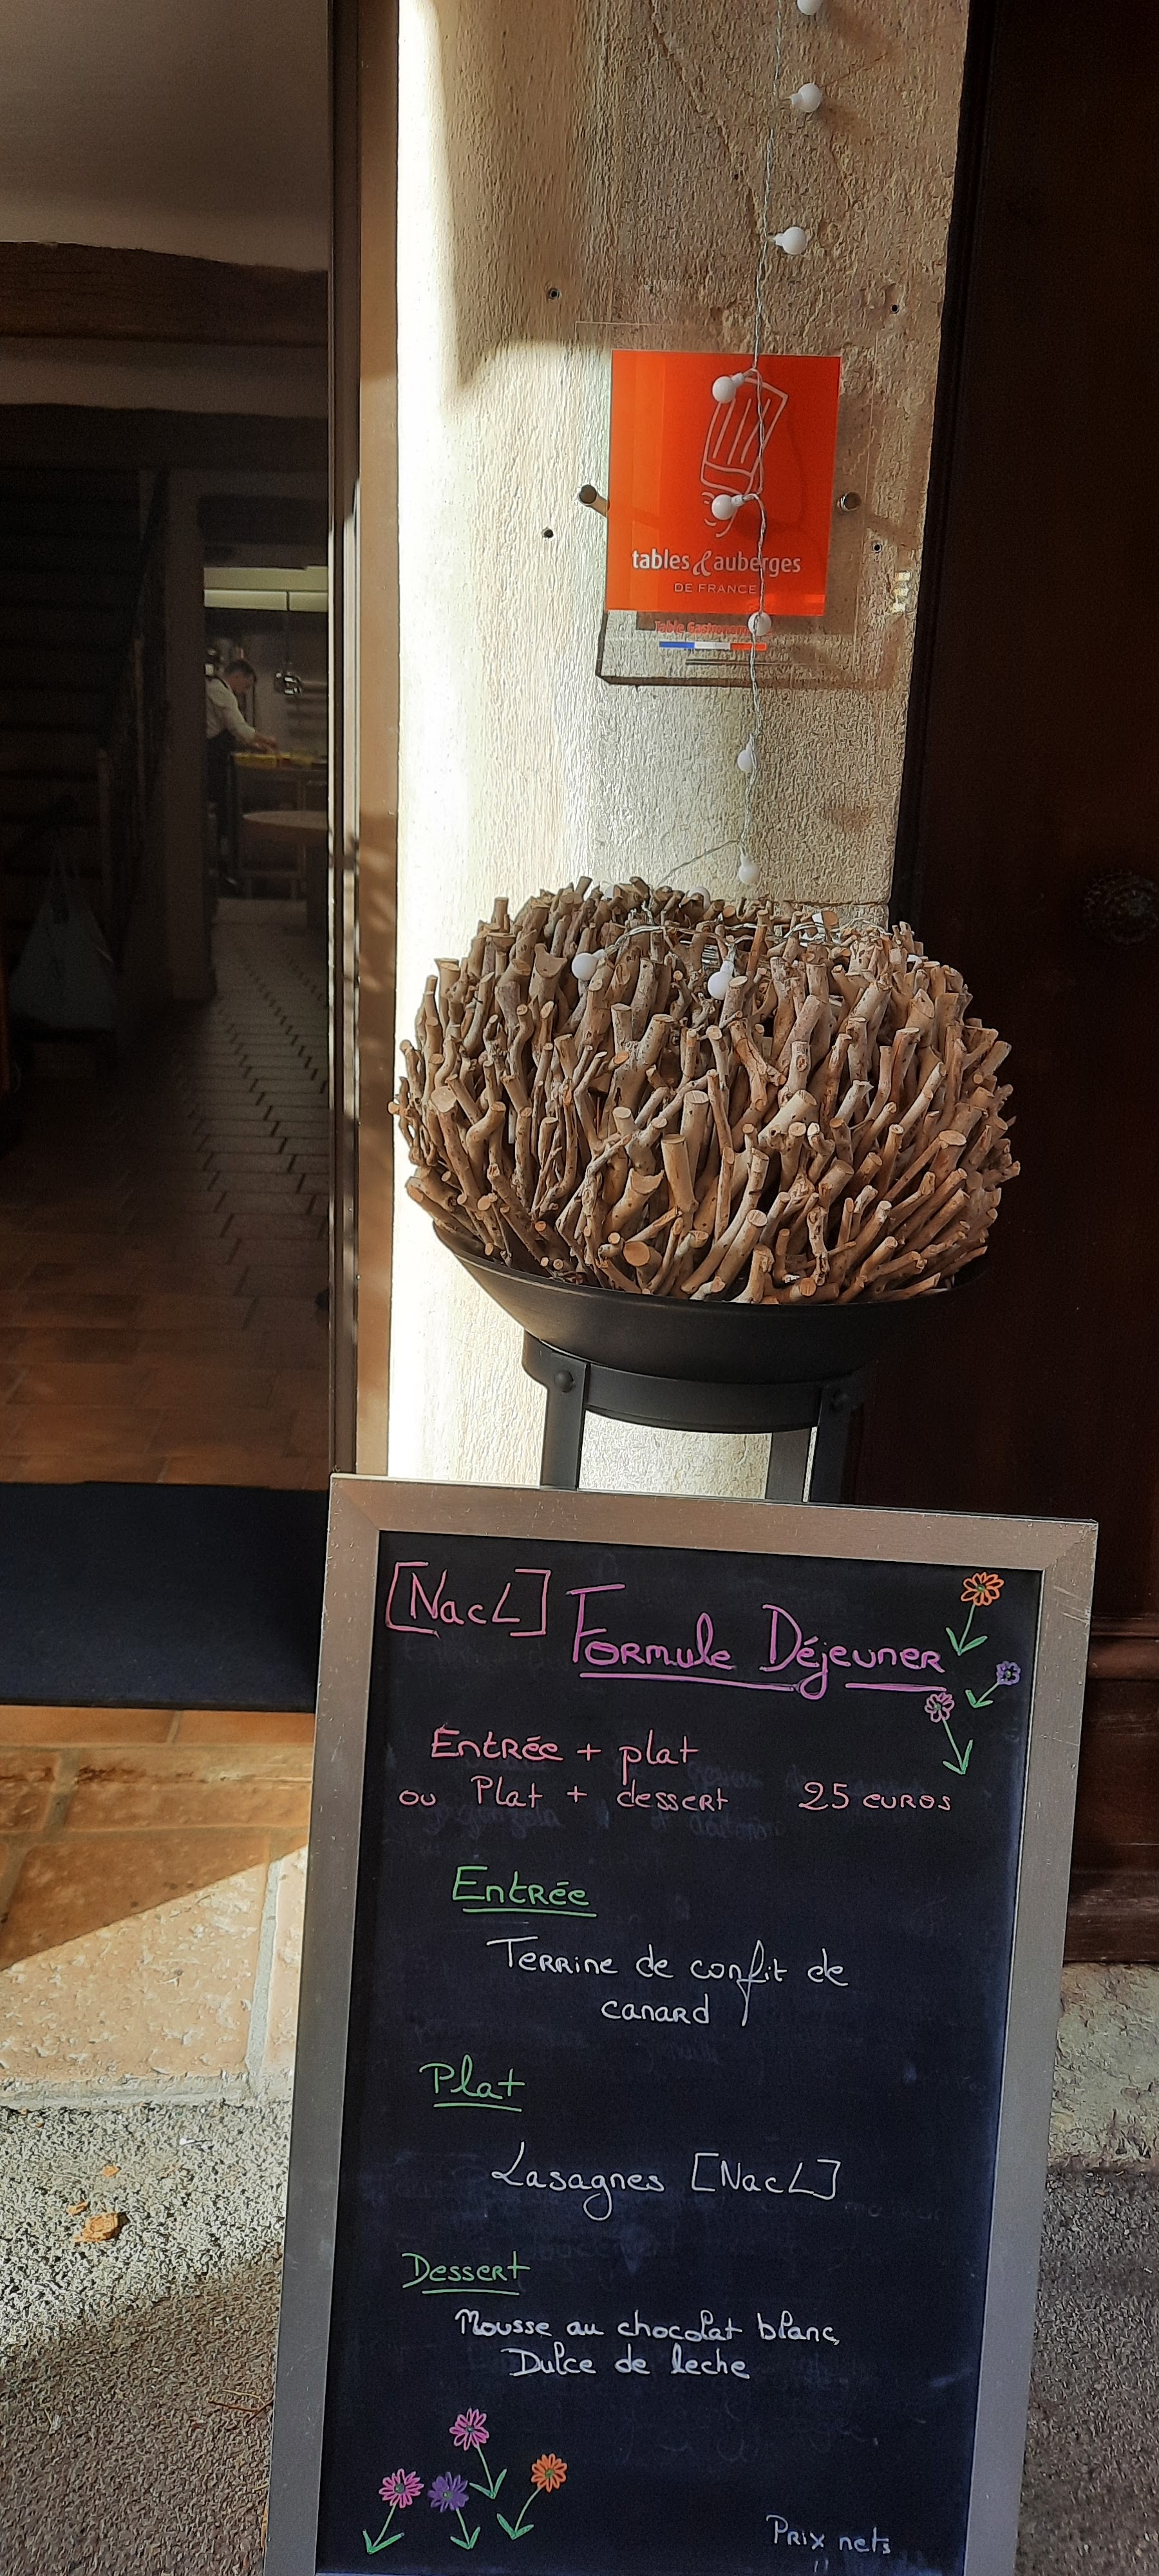 tables & auberges
DE FRANCE
Table Gastronomique
[NacL] Formule Déjeuner
Entrée + plat
ou Plat + dessert 25 euros
Entrée
Terrine de confit de
canard
Plat
Lasagnes [NacL]
Dessert
Mousse au chocolat blanc,
Dulce de leche
Prix nets